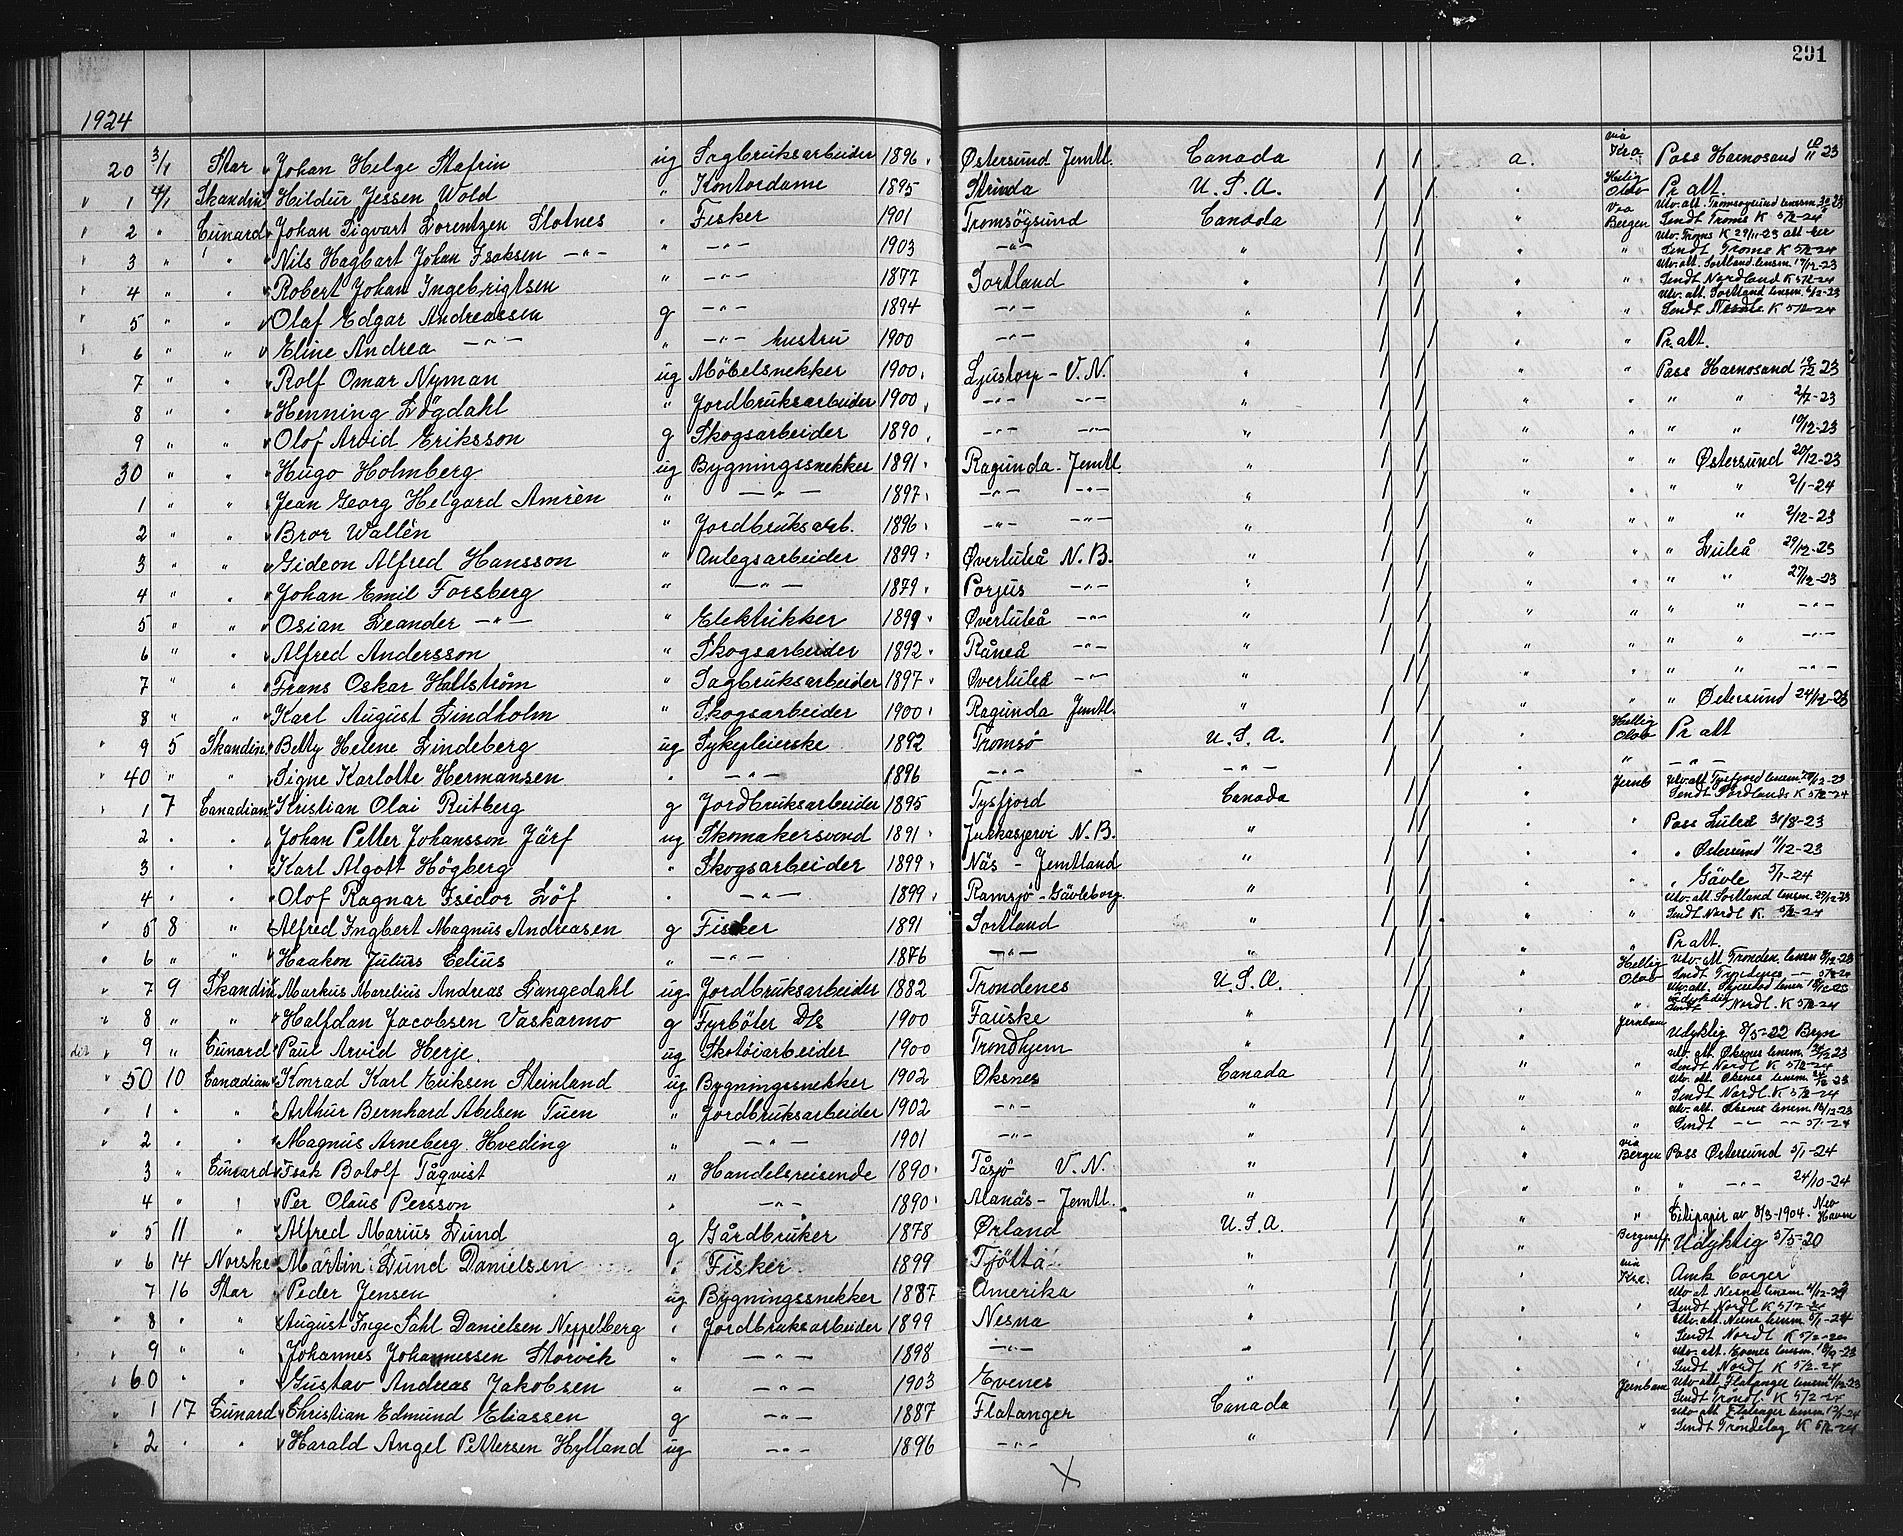 291
1924
20 3/1 Star " Johan Helge Stafrin ug Sagbruksarbeider 1896 Østersund Jemtl. Canada 1 1 a. via Kra Pass Harnosand 10/11 23
" 1 4/1 Skandin " Hildur Jessen Wold " Kontordame 1895 Strinda U.S.A. 1 1 " Hellig Olav Pr att.
" 2 " Cunard " Johan Sigvart Lorentzen Slotnes " Fisker 1901 Tromsöysund Canada 1 1 " Via Bergen Utv. att. Tromsøysund lensm. 30/12 23 Sendt Troms K 5/2-24
" 3 " " " Nils Hagbart Johan Isaksen -"- " -"- 1903 -"- " 1 1 " " Utv. Troms K 29/11-23 att her Sendt Troms K 5/2-24
" 4 " " " Robert Johan Ingebrigtsen " -"- 1877 Sortland " 1 1 " " Utv. att. Sortland lensm. 19/12-23 Sendt Nordland K 5/2-24
" 5 " " " Olaf Edgar Andreassen g -"- 1894 -"- " 1 1 " " Utv. att. Sortland lensm. 6/12-23 Sendt K 5/2-24
" 6 " " " Eline Andrea -"- " -"- hustru 1900 -"- " 1 1 " " Pr. att.
7 " " " Rolf Omar Nyman ug Möbelsnekker 1900 Ljustorp - V.N. " 1 1 " " Pass Harnosand 19/12 23
8 " " " Henning Lögdahl " Jordbruksarbeider 1900 -"- -"- " 1 1 " " " " 2/7-23
9 " " " Olof Arvid Eriksson g Skogsarbeider 1890 -"- -"- " 1 1 " " " " 19/12-23
30 " " " Hugo Holmberg ug Bygningssnekker 1891 Ragunda - Jemtl " 1 1 " " " Østersund 20/12-23
1 " " " Jean Georg Helgard Amrén " -"- 1897 -"- -"- " 1 1 " " " " 2/1-24
2 " " " Bror Wallén " Jordbruksarb. 1896 -"- -"- " 1 1 " " " " 2/12-23
3 " " " Gideon Alfred Hansson " Anlegsarbeider 1899 Øverluleå N.B. " 1 1 " " " Luleå 29/12-23
4 " " " Johan Emil Forsberg " -"- 1879 Porjus -"- " 1 1 " " " " 27/12-23
5 " " " Osian Leander -"- " Elektrikker 1899 Øverluleå -"- " 1 1 " " " " -"-
6 " " " Alfred Andersson " Skogsarbeider 1892 Råneå -"- " 1 1 " " " " -"-
7 " " " Frans Oskar Hallström " Sagbruksarbeider 1897 Øverluleå -"- " 1 1 " " " " -"-
8 " " " Karl August Lindholm " Skogsarbeider 1900 Ragunda Jemtl. " 1 1 " " " Østersund 24/12-23
" 9 5 Skandin. " Betty Helene Lindeberg ug Sykepleierske 1892 Tromsö U.S.A. 1 1 " Hellig Olav Pr att
" 40 " " " Signe Karlotte Hermansen " -"- 1896 -"- -"- 1 1 " " -"-
" 1 7 Canadian " Kristian Olai Reitberg g Jordbruksarbeider 1895 Tysfjord Canada 1 1 " Jernb Utv. att Tysfjord lensm. 29/12-23 Sendt Nordlands K 5/2-24
2 " " " Johan Petter Johansson Järf ug Skomakersvend 1891 Jukkasjervi N.B. " 1 1 " " Pass Luleå 31/8-23
3 " " " Karl Algott Högberg " Skogsarbeider 1899 Näs - Jemtland " 1 1 " " " Østersund 11/12-23
4 " " " Olof Ragnar Isidor Löf " -"- 1899 Ramsjö - Gävleborg. " 1 1 " " " Gävle 5/1-24
" 5 8 " " Alfred Ingbert Magnus Andreasen g Fisker 1891 Sortland " 1 1 " " Utv. att. Sortland lensm. 29/12-23 Sendt Nordl K. 5/2-24
" 6 " " " Haakon Julius Celius " -"- 1876 -"- " 1 1 " " Pr att.
" 7 9 Skandin " Markus Marelius Andreas Langedahl ug Jordbruksarbeider 1882 Trondenes U.S.A. 1 1 " Hellig Olav Utv. att Tronden. lensm 8/12-23 Sendt -"- 5/2-24
" 8 " " " Halfdan Jacobsen Vaskarmo g Fyrböter D/S 1900 Fauske " 1 1 " " Utv. att. lensm 18/12-23 Sendt Nordl. K 5/2-24
" 9 " Cunard " Paul Arvid Herje ug Skotöiarbeider 1900 Trondhjem " 1 1 " Jernban Udyktig 8/5-22 Bryn
" 50 10 Canadian " Konrad Karl Eriksen Steinland ug Bygningssnekker 1902 Øksnes Canada 1 1 " " Utv. att Øksnes lensm. 24/12 23 Sendt Nordl K 5/2-24
" 1 " " " Arthur Bernhard Abelsen Tuen " Jordbruksarbeider 1902 -"- " 1 1 " " Utv. att. Øksnes lensm. 24/12 23 Sendt Nordl. K 5/2-24
" 2 " " " Magnus Arneberg Hveding " -"- 1901 -"- " 1 1 " " Utv. att. Øksnes lensm. 18/12-23 Sendt -"- -"- 5/1-24
3 " Cunard " Isak Botolf Tåqvist " Handelsreisende 1890 Tåsjö V.N. " 1 1 " via Bergen Pass Østersund 5/1-24
4 " " " Per Olaus Persson " -"- 1890 Alanäs - Jemtl. " 1 1 " " " -"- 24/10-24
" 5 11 " " Alfred Marius Lund g Gårdbruker 1878 Ørland U.S.A. 1 1 " " Citipapir av 8/3-1904. New Haven
" 6 14 Norske " Martin Lund Danielsen " Fisker 1899 Tjötta " 1 1 " Bergensfj Udyktig 5/5-20
7 16 Star " Peder Jensen ug Bygningssnekker 1887 Amerika " 1 1 " via Kra. Amk borger
" 8 " " " August Inge Sahl Danielsen Neppelberg " Jordbruksarbeider 1899 Nesna " 1 1 " " Utv. at Nesna lensm 4/12-23 Sendt Nordl K 5/2-24
" 9 " " " Johannes Johannessen Storvik " -"- 1898 -"- " 1 1 " " Utv. att. Nesna lensm. 5/1-24 Sendt Nordl K 5/2-24
" 60 " " " Gustav Andreas Jakobsen " -"- 1903 Evenes " 1 1 " " Utv. att. Evenes lensm. 18/9-23 Sendt Nordl K 5/2-24
" 1 17 Cunard " Christian Edmund Eliassen g -"- 1887 Flatanger Canada 1 1 " Jernban Utv. att Flatanger lensm 4/12-23 Sendt Tröndl. K 5/2-24
" 2 " " " Harald Angel Pettersen Hylland ug -"- 1896 -"- " 1 1 " " Utv. att Flatanger lensm. 12/1-24 Sendt Tröndelag K 5/2-24
X